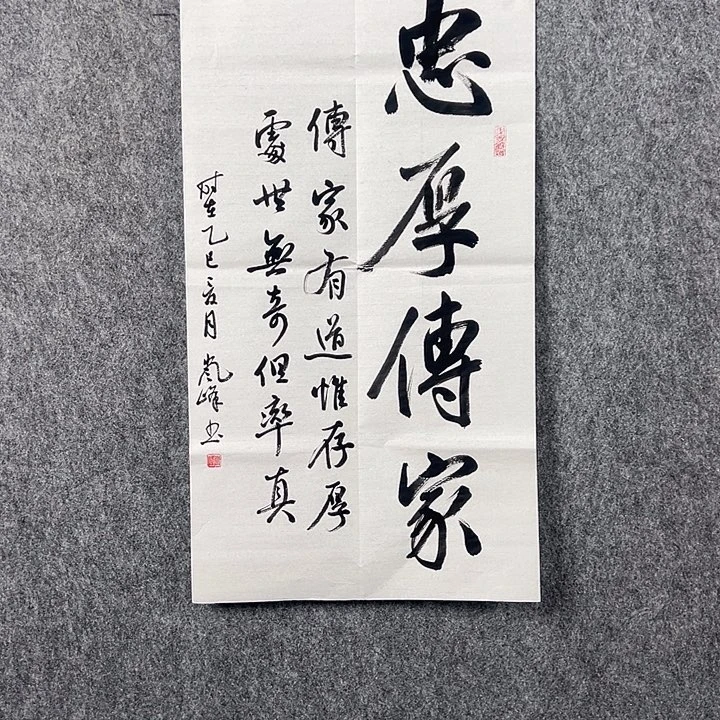 忠厚傳家
傳家有道惟存厚
處世無奇但率真
時在乙巳夏月嵐峰书